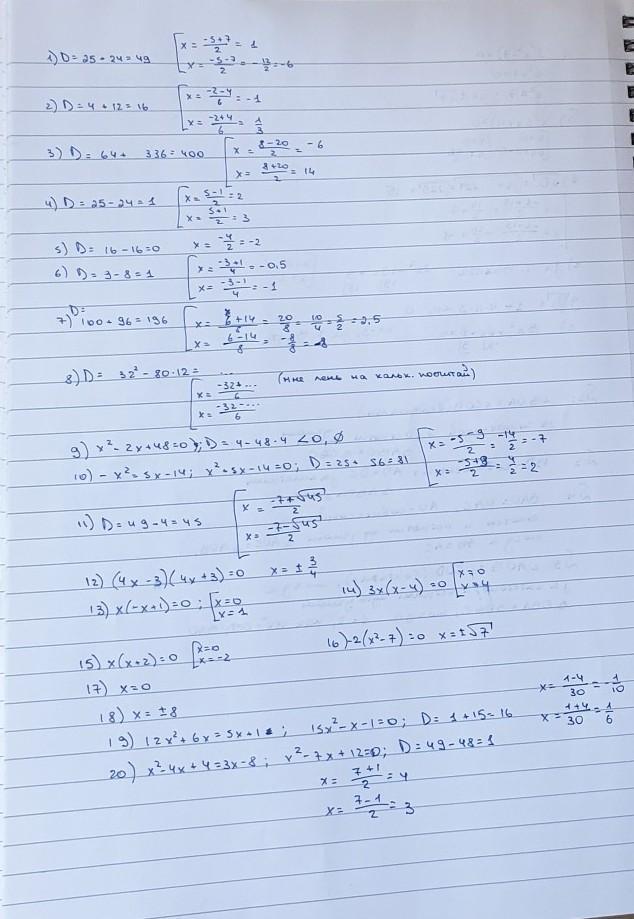 1) D = 25 + 24 = 49 [ x = (-5+7)/2 = 1
x = (-5-7)/2 = -12/2 = -6
2) D = 4 + 12 = 16 [ x = (-2-4)/6 = -1
x = (-2+4)/6 = 1/3
3) D = 64 + 336 = 400 [ x = (8-20)/2 = -6
x = (8+20)/2 = 14
4) D = 25 - 24 = 1 [ x = (5-1)/2 = 2
x = (5+1)/2 = 3
5) D = 16 - 16 = 0 x = -4/2 = -2
6) D = 9 - 8 = 1 [ x = (-3+1)/4 = -0,5
x = (-3-1)/4 = -1
7) D = 100 + 96 = 196 [ x = (6+14)/8 = 20/8 = 10/4 = 5/2 = 2,5
x = (6-14)/8 = -8/8 =
8) D = 32² - 80·12 = ... (мне лень на кальк. посчитай)
[ x = (-32+...)/6
x = (-32-...)/6
9) x² - 2x + 48 = 0; D = 4 - 48·4 < 0, ∅
10) -x² = 5x - 14; x² + 5x - 14 = 0; D = 25 + 56 = 81 [ x = (-5-9)/2 = -14/2 = -7
x = (-5+9)/2 = 4/2 = 2
11) D = 49 - 4 = 45 [ x = (-7+√45)/2
x = (-7-√45)/2
12) (4x - 3)(4x + 3) = 0 x = ± 3/4
13) x(-x+1) = 0; [ x = 0
x = 1
14) 3x(x-4) = 0 [ x = 0
x = 4
15) x(x+2) = 0 [ x = 0
x = -2
16) -2(x²-7) = 0 x = ±√7
17) x = 0
18) x = ±8
19) 12x² + 6x = 5x + 1; 15x² - x - 1 = 0; D = 1 + 15 = 16 x = (1-4)/30 = -1/10
x = (1+4)/30 = 1/6
20) x² - 4x + 4 = 3x - 8; x² - 7x + 12 = 0; D = 49 - 48 = 1
x = (7+1)/2 = 4
x = (7-1)/2 = 3